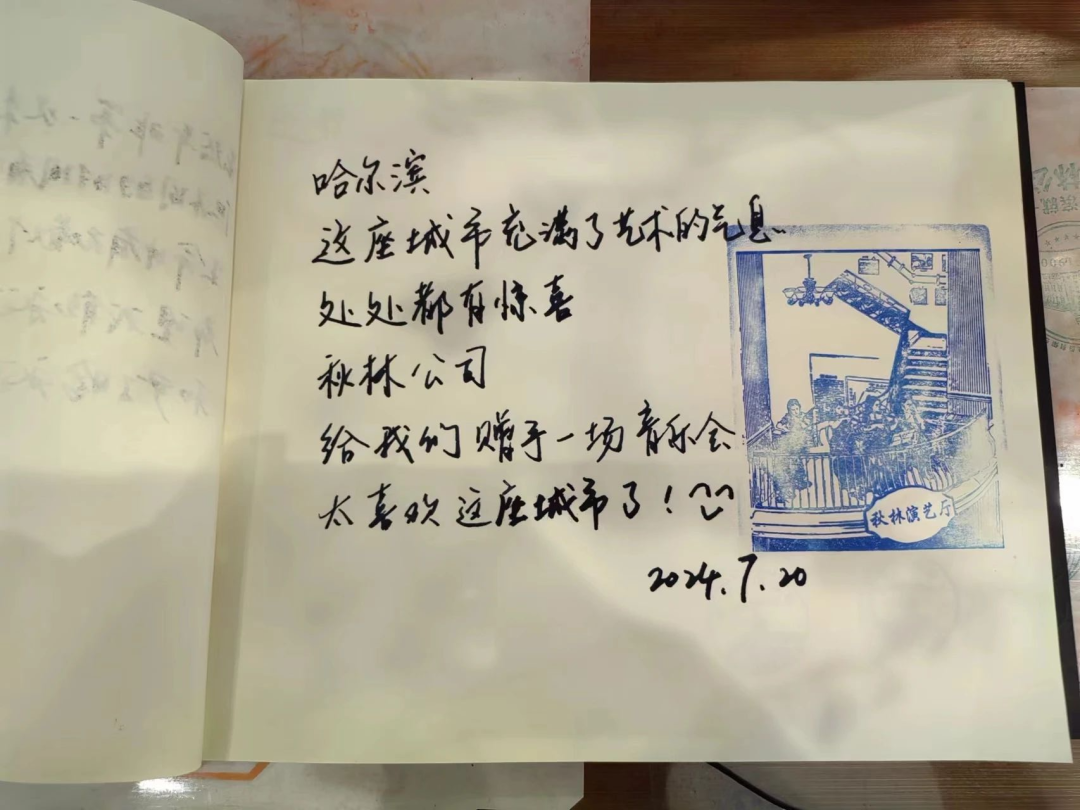 哈尔滨
这座城市充满了艺术的气息
处处都有惊喜
秋林公司
给我们赠予一场音乐会
太喜欢这座城市了！^^
2024.7.20
秋林演艺厅